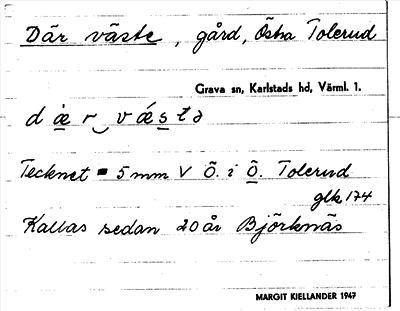 Där väste, gård, Östra Tolerud
Grava sn, Karlstads hd, Värml. 1.
d æ r ‿ v ǽ s t ə
Tecknet ▪ 5 mm V Ö. i Ö. Tolerud
glk 174
Kallas sedan 20 år Björknäs
MARGIT KIELLANDER 1947